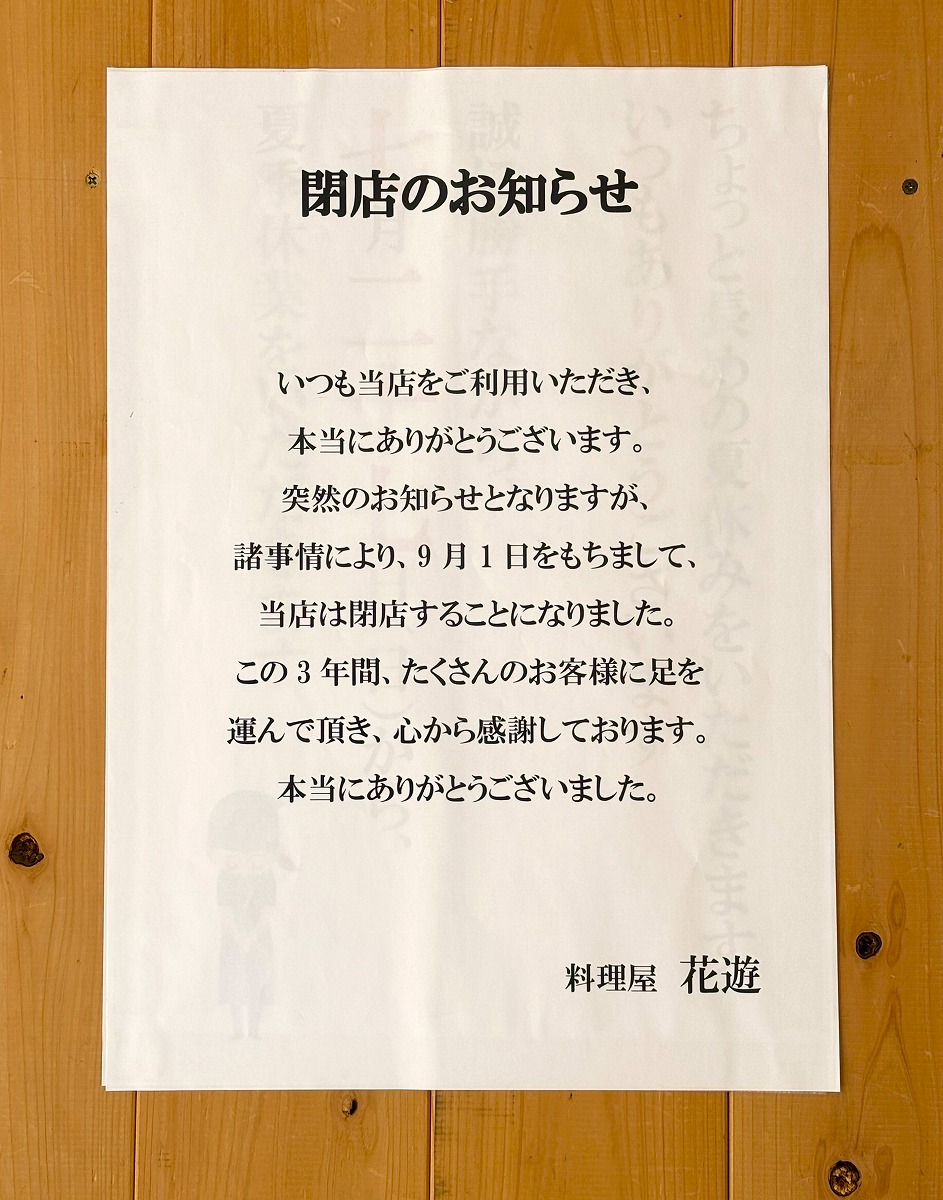 閉店のお知らせ
いつも当店をご利用いただき、
本当にありがとうございます。
突然のお知らせとなりますが、
諸事情により、9月1日をもちまして、
当店は閉店することになりました。
この3年間、たくさんのお客様に足を
運んで頂き、心から感謝しております。
本当にありがとうございました。
料理屋 花遊